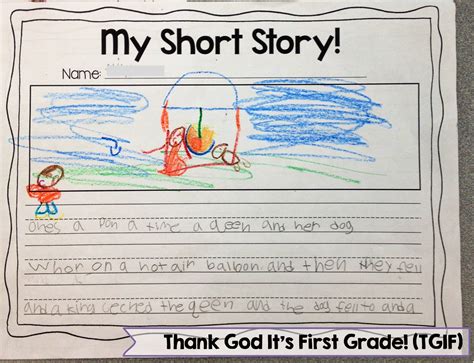 My Short Story!
Name:
ones a pon a time a qeen and her dog
Wher on a hot air balbon and then they fell
and a king ceched the qeen and the dog fell to and a
Thank God It's First Grade! (TGIF)